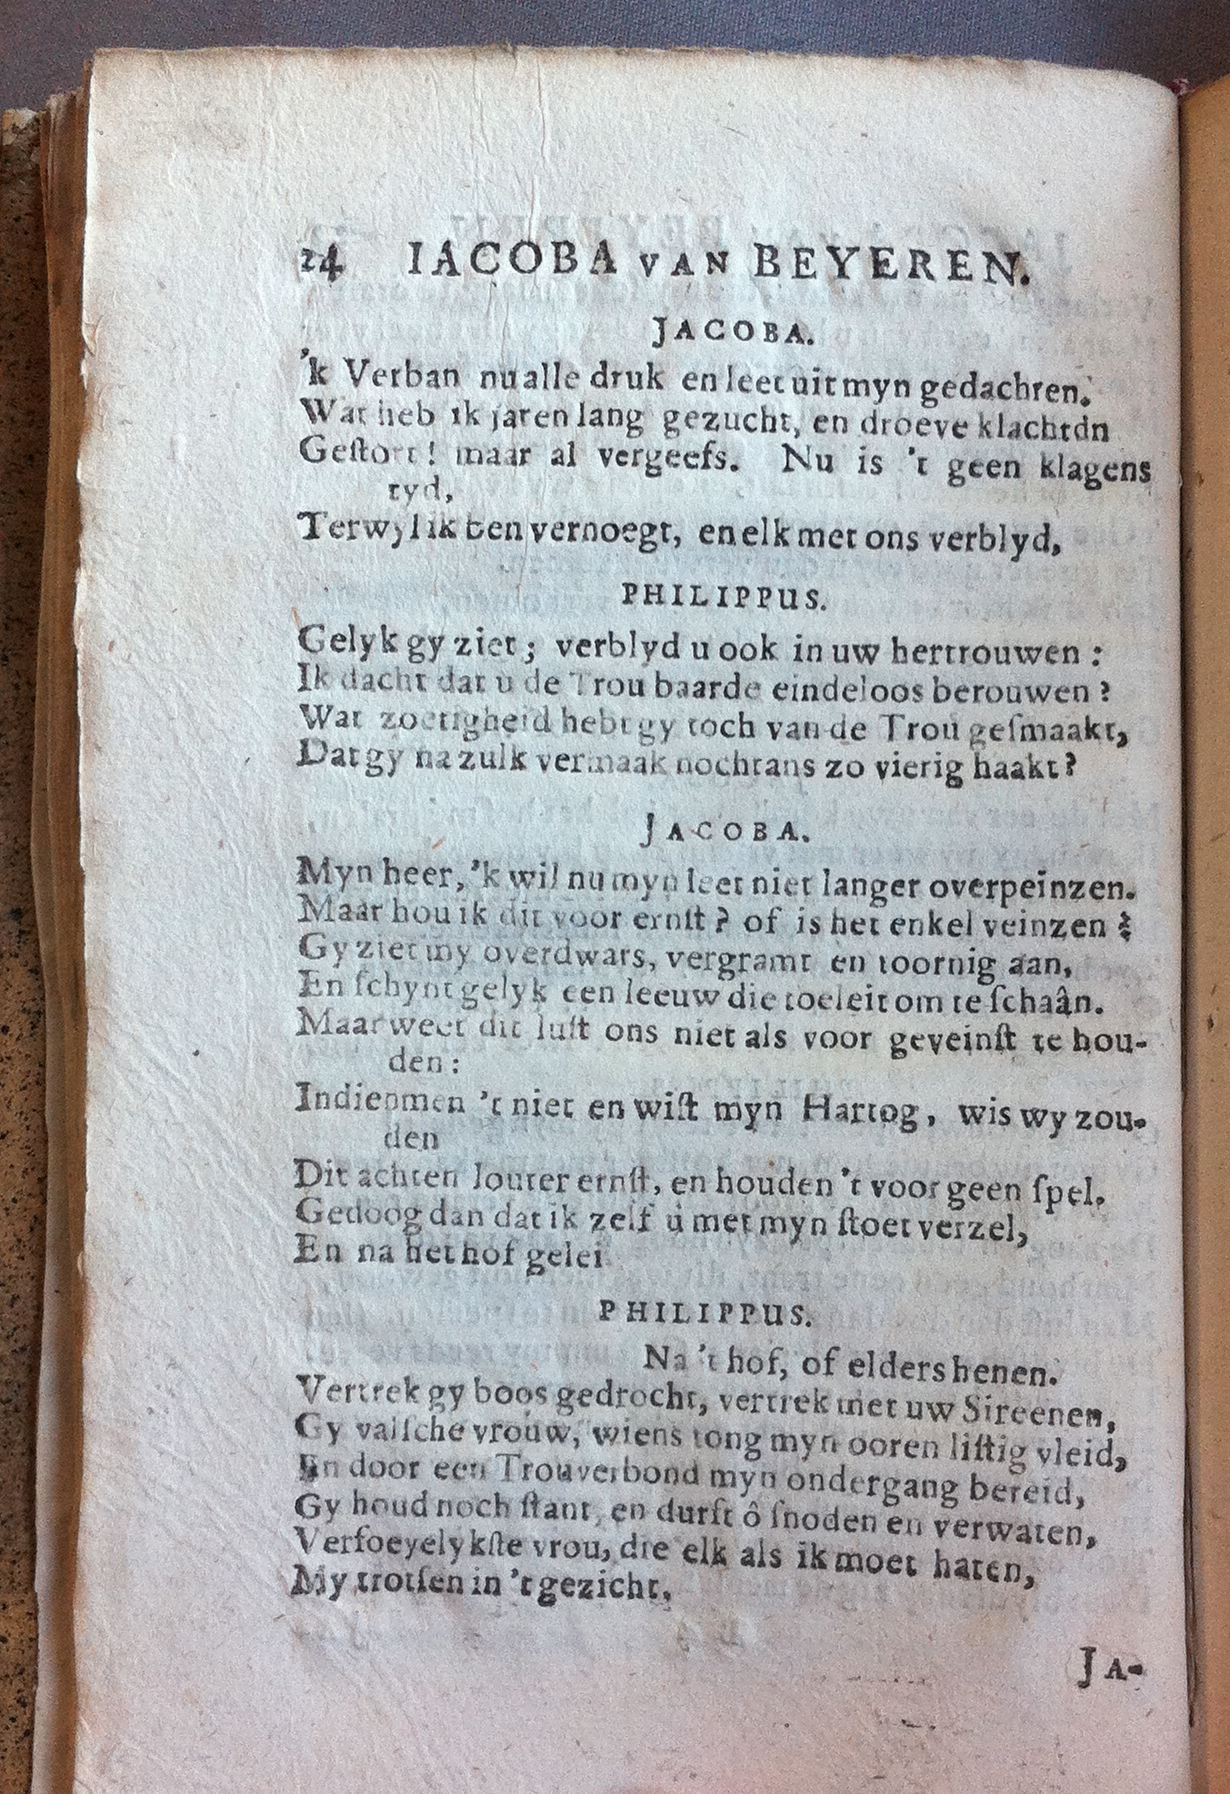 24 IACOBA VAN BEYEREN.
JACOBA.
'k Verban nu alle druk en leet uit myn gedachten.
Wat heb ik jaren lang gezucht, en droeve klachtdn
Geſtort! maar al vergeefs. Nu is 't geen klagens
tyd,
Terwyl ik ben vernoegt, en elk met ons verblyd,
PHILIPPUS.
Gelyk gy ziet; verblyd u ook in uw hertrouwen:
Ik dacht dat u de Trou baarde eindeloos berouwen?
Wat zoetigheid hebt gy toch van de Trou geſmaakt,
Dat gy na zulk vermaak nochtans zo vierig haakt?
JACOBA.
Myn heer, 'k wil nu myn leet niet langer overpeinzen.
Maar hou ik dit voor ernſt? of is het enkel veinzen?
Gy ziet my overdwars, vergramt en toornig aan,
En ſchynt gelyk een leeuw die toeleit om te ſchaân.
Maar weet dit luſt ons niet als voor geveinſt te hou-
den:
Indien men 't niet en wiſt myn Hartog, wis wy zou-
den
Dit achten louter ernſt, en houden 't voor geen ſpel.
Gedoog dan dat ik zelf u met myn ſtoet verzel,
En na het hof gelei
PHILIPPUS.
Na 't hof, of elders henen.
Vertrek gy boos gedrocht, vertrek met uw Sireenen,
Gy valſche vrouw, wiens tong myn ooren liſtig vleid,
En door een Trouverbond myn ondergang bereid,
Gy houd noch ſtant, en durft ô ſnoden en verwaten,
Verfoeyelykſte vrou, die elk als ik moet haten,
My trotſen in 't gezicht.
JA-